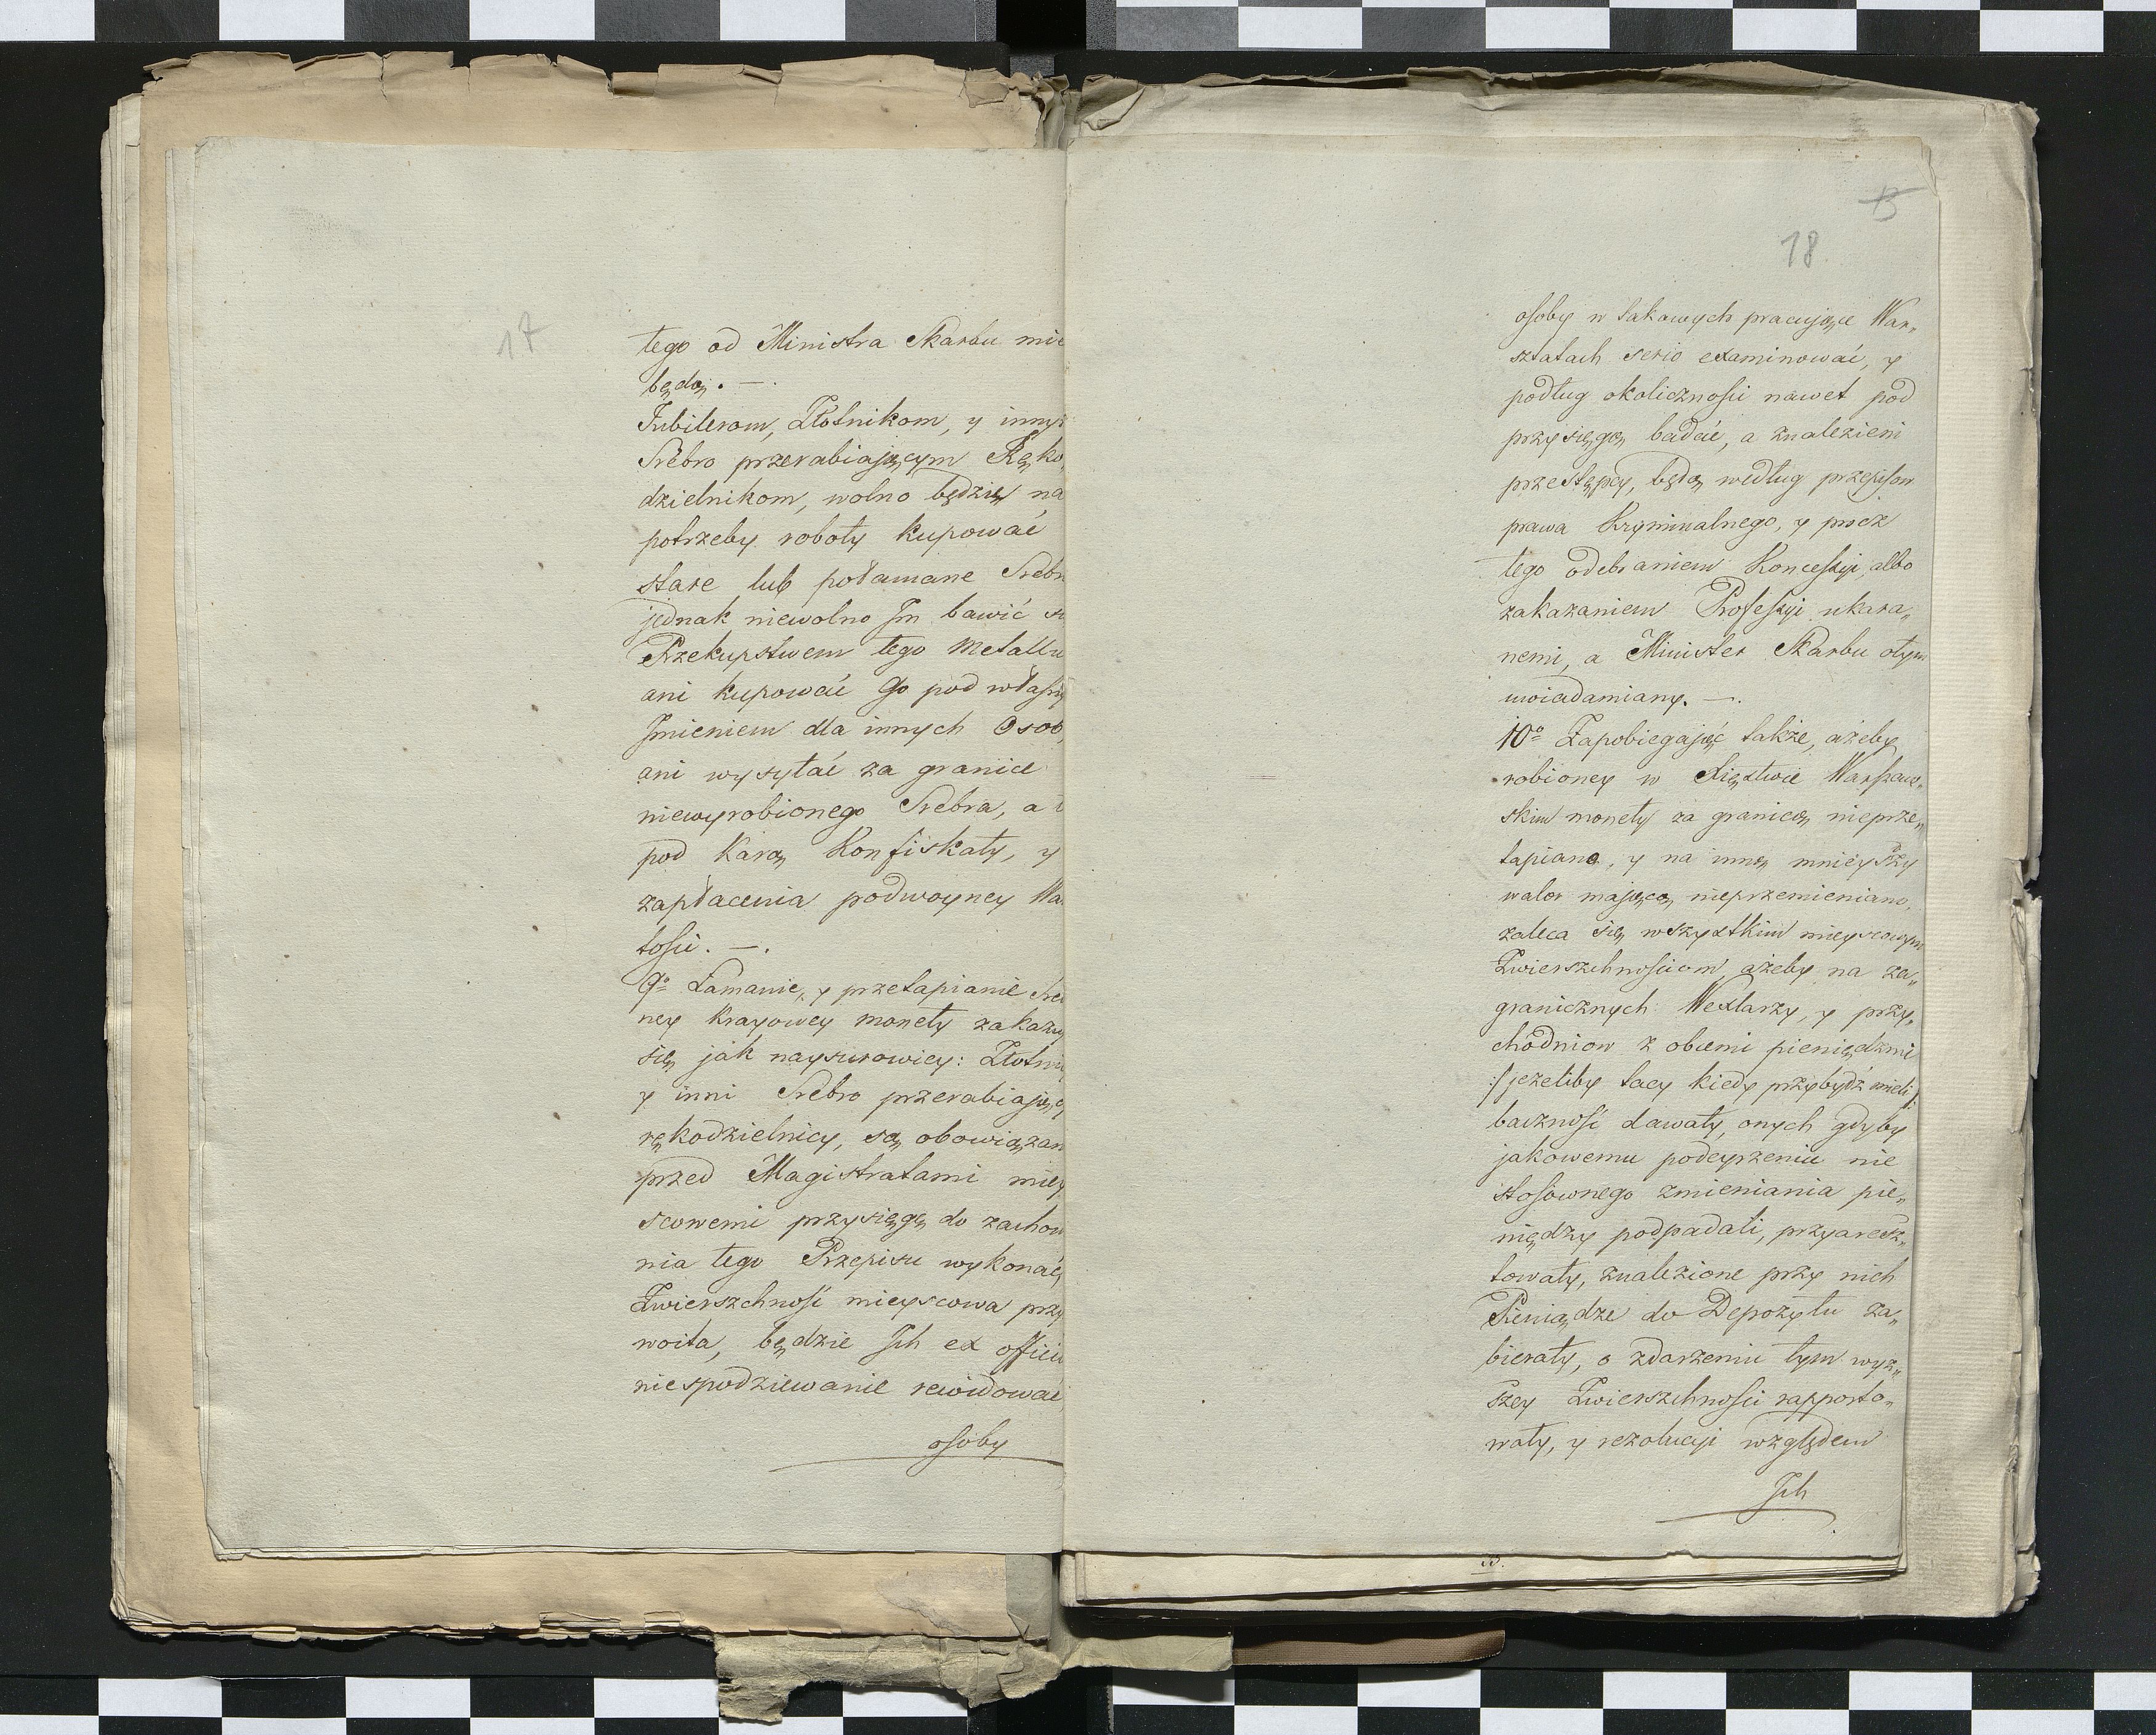 17
tego od Ministra Skarbu mie
będą. —.
Jubilerom, Złotnikom, y innym
Srebro przerabiającym Ręko„
dzielnikom, wolno będzie na
potrzeby roboty kupować
stare lub połamane Srebr
jednak niewolno Jm bawić si
Przekupstwem tego Metallu
ani kupować Go pod własny
Jmieniem dla innych Osob,
ani wysyłać za granice
niewyrobionego Srebra, a
pod karą Konfiskaty, y
zapłacenia podwoyney Wa
tości. —.
9o Łamanie, y przetapianie Sre
ney Krayowey monety zakazu
się jak naysurowiey: Złotni
y inni Srebro przerabiający
rękodzielnicy, są obowiązan
przed Magistratami miey
scowemi przysięgę do zachow
nia tego Przepisu wykonać,
Zwierzchność mieyscowa przy
woita, będzie Jch ex officio
niespodziewanie rewidować
osoby
13
18.
osoby w takowych pracujące War„
sztatach serio examinować, y
podług okoliczności nawet pod
przysięgą badać, a znalezieni
przestępcy, będą według przepisow
prawa Kryminalnego, y precz
tego odebraniem Koncessyi, albo
zakazaniem Professyi ukara„
nemi, a Minister Skarbu otym
uwiadamiany. —.
10o Zapobiegaiąc także, ażeby
robioney w Xięztwie Warszaw„
skim monety za granicą nieprze„
tapiano, y na inną mnieyszy
walor mającą nieprzemieniano,
zaleca się wszystkim mieyscowym
Zwierzchnościom, ażeby na za„
granicznych Wexlarzy, y przy„
chodniow z obcemi pieniędzmi
:/jeżeliby tacy kiedy przybydź mieli/:
baczność dawały, onych gdyby
jakowemu podeyrzeniu nie
stosownego zmieniania pie„
niędzy podpadali, przyaresz„
towały, znalezione przy nich
Pieniądze do Depozytu za„
bierały, o zdarzeniu tym wyż„
szey Zwierzchności rapporto„
wały, y rezolucyi względem
Jch